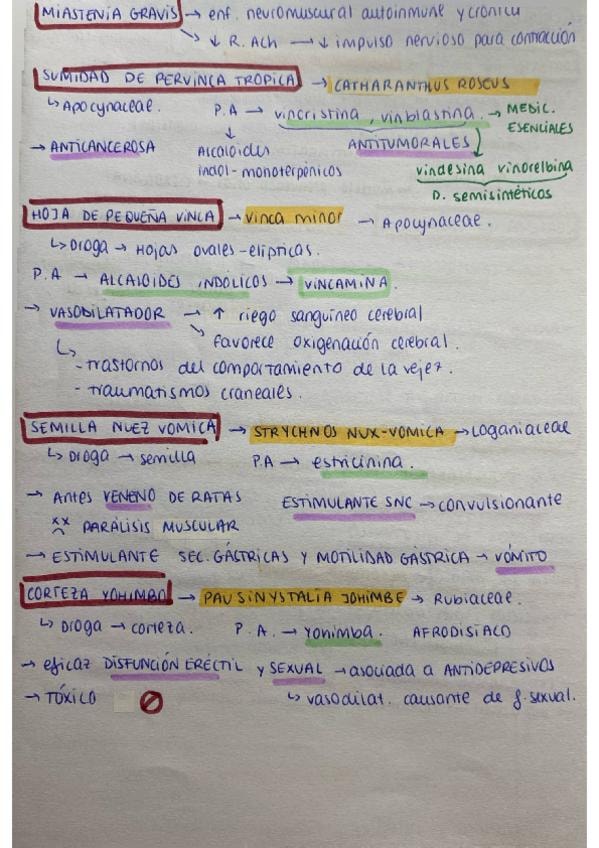 MIASTENIA GRAVIS → enf. neuromuscular autoinmune y crónica
↘ ↓ R. Ach → ↓ impulso nervioso para contracción
SUMIDAD DE PERVINCA TROPICAL → CATHARANTHUS ROSEUS
↳ Apocynaceae. P.A → vincristina, vinblastina. → MEDIC. ESENCIALES
→ ANTICANCEROSA Alcaloides ANTITUMORALES
indol-monoterpénicos vindesina vinorelbina
D. semisintéticos
HOJA DE PEQUEÑA VINCA → vinca minor → Apocynaceae.
↳ Droga → Hojas ovales-elípticas.
P.A → ALCALOIDES INDÓLICOS → VINCAMINA.
→ VASODILATADOR → ↑ riego sanguíneo cerebral
↘ favorece oxigenación cerebral.
↳ - trastornos del comportamiento de la vejez.
- traumatismos craneales.
SEMILLA NUEZ VOMICA → STRYCHNOS NUX-VOMICA → Loganiaceae
↳ Droga → semilla P.A → estricinina.
→ Antes VENENO DE RATAS ESTIMULANTE SNC → convulsionante
xx PARÁLISIS MUSCULAR
→ ESTIMULANTE SEC. GÁSTRICAS Y MOTILIDAD GÁSTRICA → VÓMITO
CORTEZA YOHIMBO → PAUSINYSTALIA JOHIMBE → Rubiaceae.
↳ Droga → corteza. P.A. → Yohimba. AFRODISIACO
→ eficaz DISFUNCIÓN ERÉCTIL y SEXUAL → asociada a ANTIDEPRESIVOS
→ TÓXICO ↳ vasodilat. causante de f. sexual.